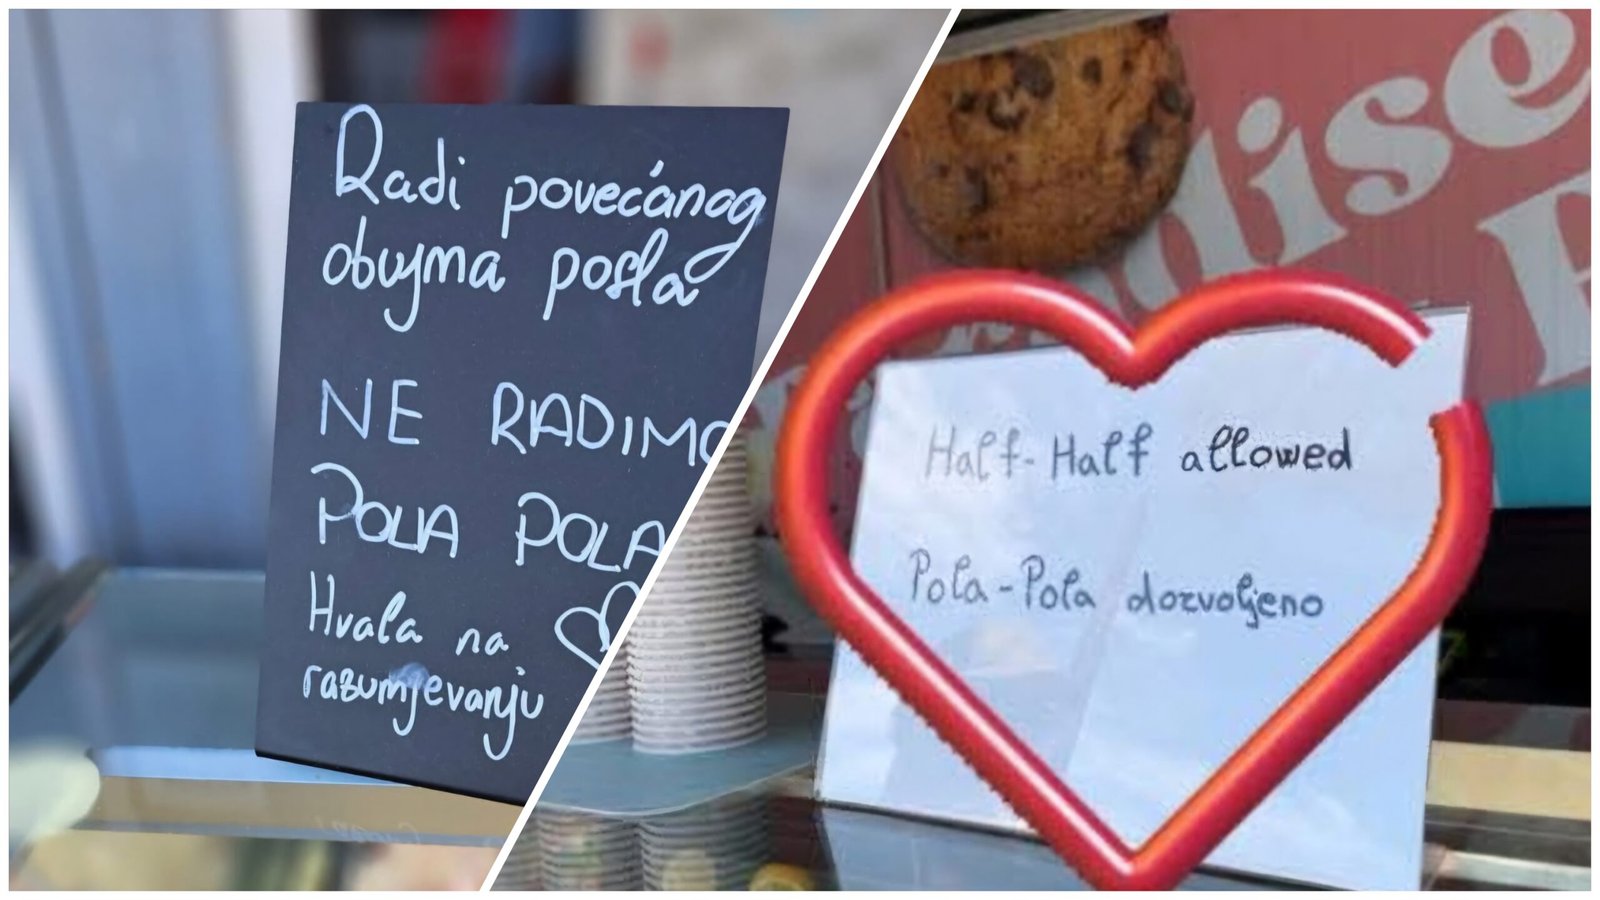 Radi povećanog
obujma posla
NE RADIMO
POLA POLA
Hvala na
razumjevanju
Half-Half allowed
Pola-Pola dozvoljeno